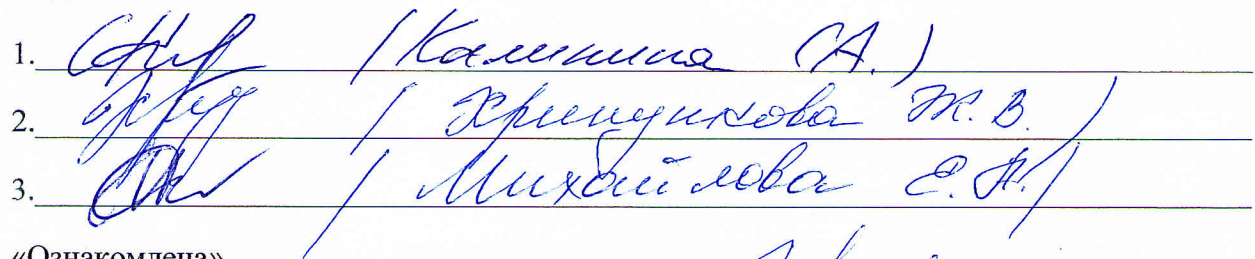 1. / Калинина С.А. /
2. / Хрипункова Ж.В. /
3. / Михайлова Е.Н. /
«Ознакомлена»